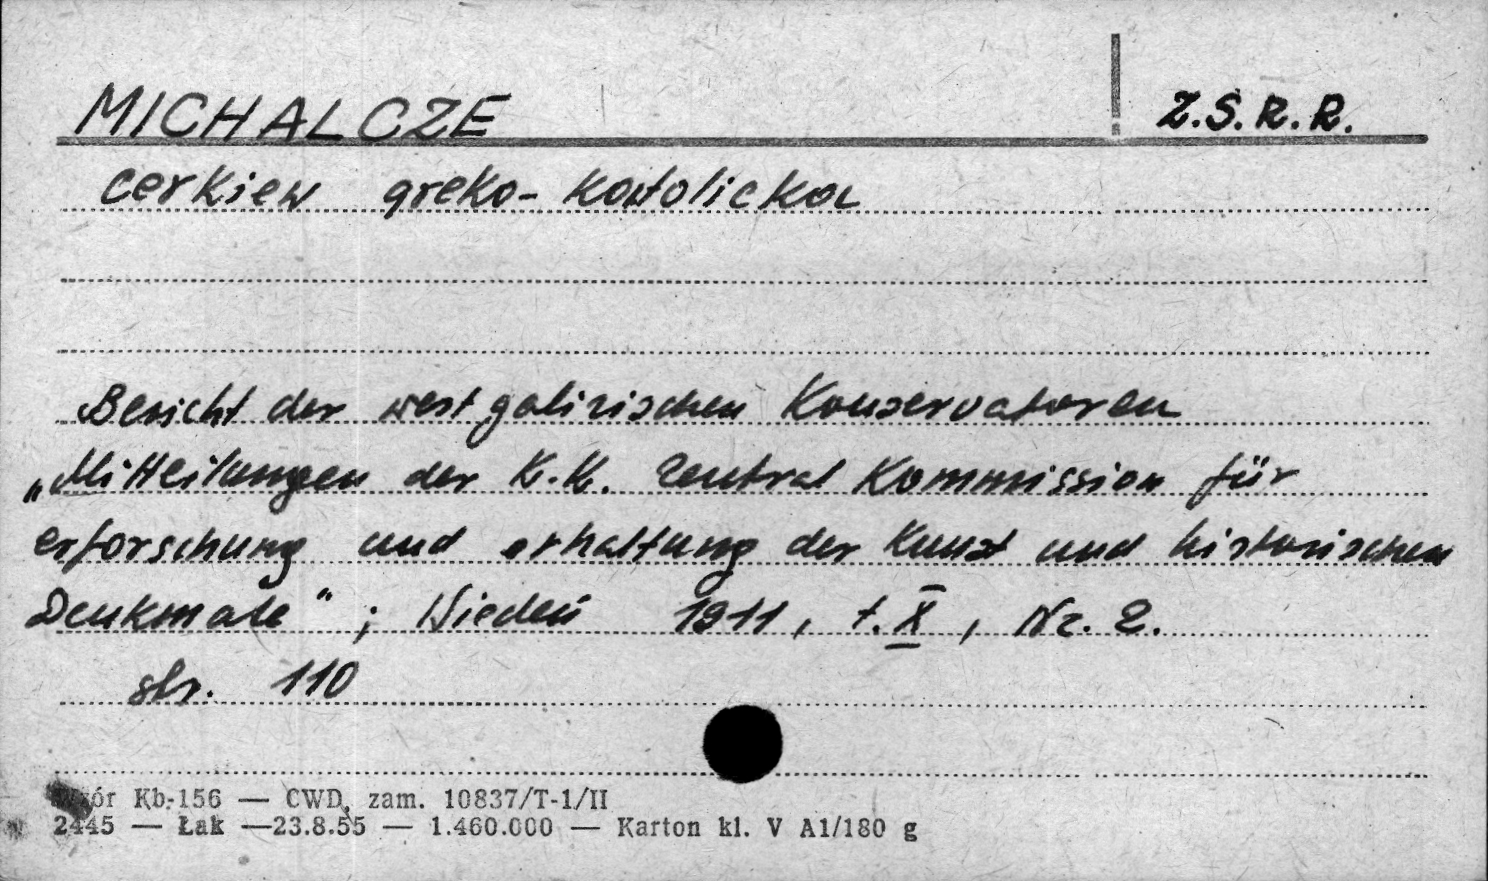 MICHALCZE
Z.S.R.R.
cerkiew greko-katolicka
Bericht der westgalizischen Konservatoren
„Mitteilungen der K.K. Zentral Kommission für
erforschung und erhaltung der Kunst und historischen
Denkmale"; Wiedeń 1911, t. X, Nr. 2.
str. 110
Wzór Kb-156 — CWD, zam. 10837/T-1/II
2445 — Łak —23.8.55 — 1.460.000 — Karton kl. V A1/180 g